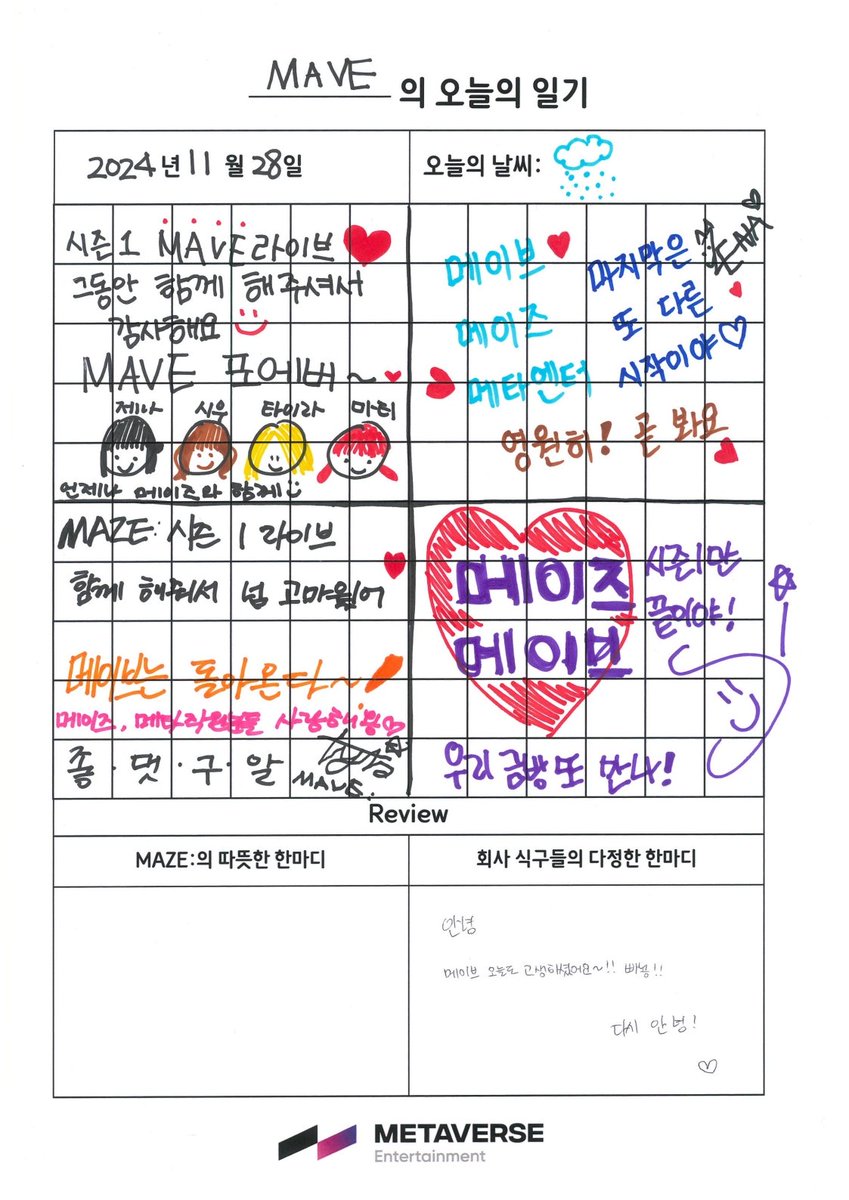 MAVE 의 오늘의 일기
2024년 11월 28일
오늘의 날씨:
시즌1 MAVE라이브
그동안 함께 해주셔서
감사해요
MAVE 포에버~
제나 시우 타이라 마티
언제나 메이즈와 함께
MAZE: 시즌 1 라이브
함께 해줘서 넘 고마웠어
메이브는 돌아온다~
메이즈, 메타직원분들 사랑해용
좋·댓·구·알
MAVE:
메이브
메이즈
메타엔터
마지막은
또 다른
시작이야
영원히! 곧 봐요
메이즈
메이브
시즌1만
끝이야!
우리 금방 또 만나!
Review
MAZE:의 따뜻한 한마디
회사 식구들의 다정한 한마디
안녕
메이브 오늘도 고생하셨어요~!! 빠밍!!
다시 안녕!
METAVERSE
Entertainment